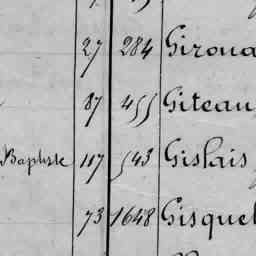 27 284 Giroua
87 455 Giteau
Baptiste 117 543 Gislais
73 1648 Gisquel